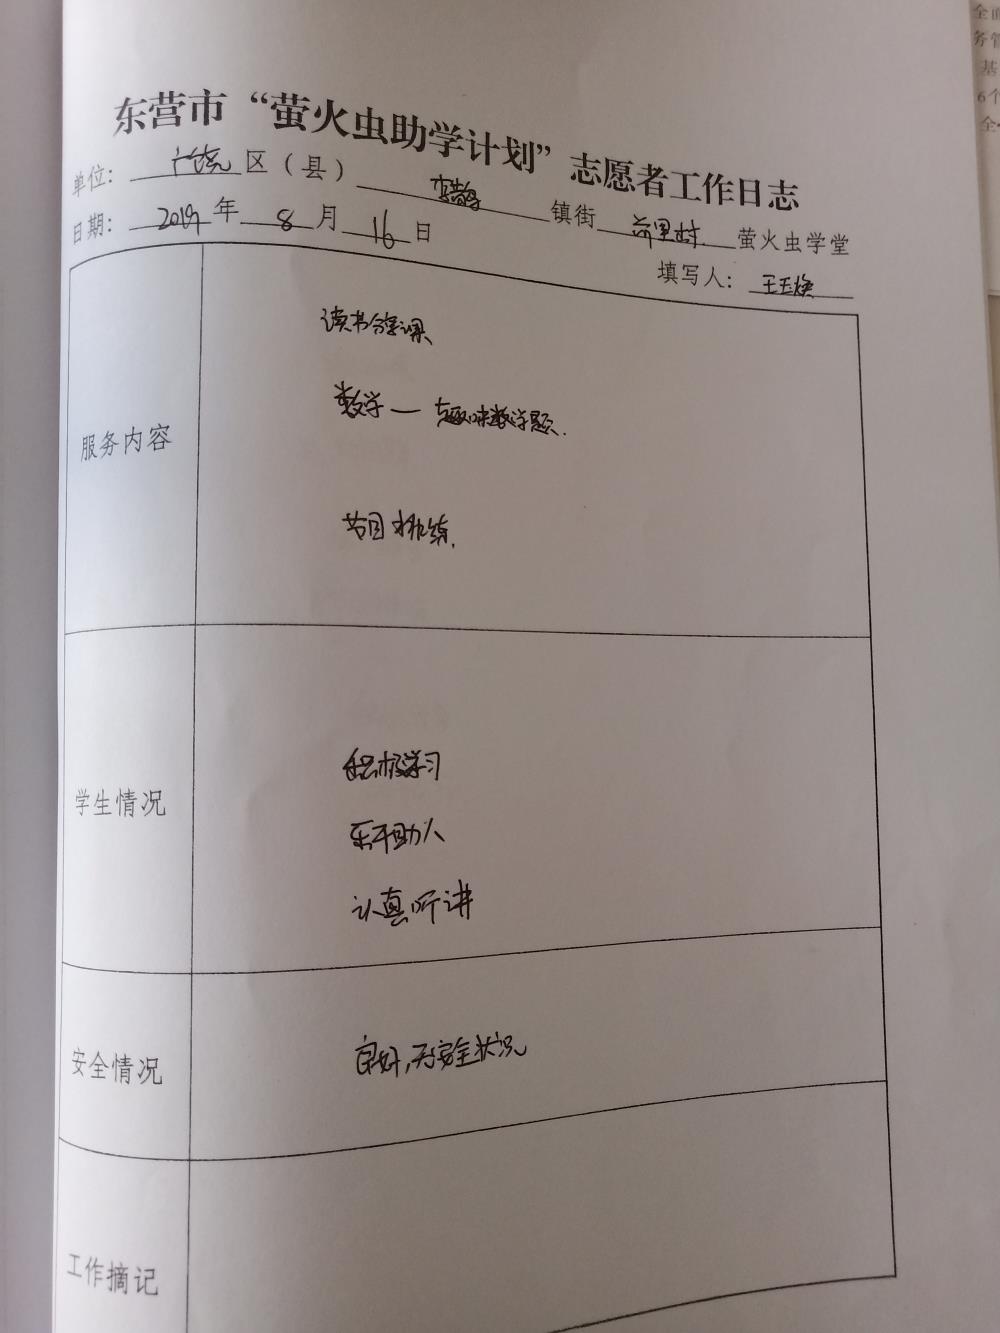 东营市“萤火虫助学计划”志愿者工作日志
单位：广饶区（县）李鹊镇街前里村萤火虫学堂
日期：2019年8月16日
填写人：王玉焕
服务内容
读书分享课
数学—趣味数学题.
节目排练.
学生情况
积极学习
乐于助人
认真听讲
安全情况
良好,无安全状况
工作摘记
全面
务管
基
6个
全